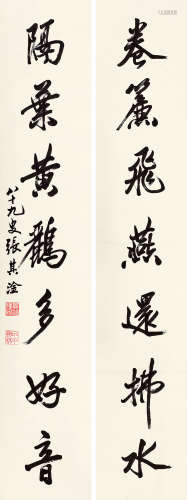 卷簾飛燕還拂水
隔葉黃鸝多好音
八十九叟張其淦